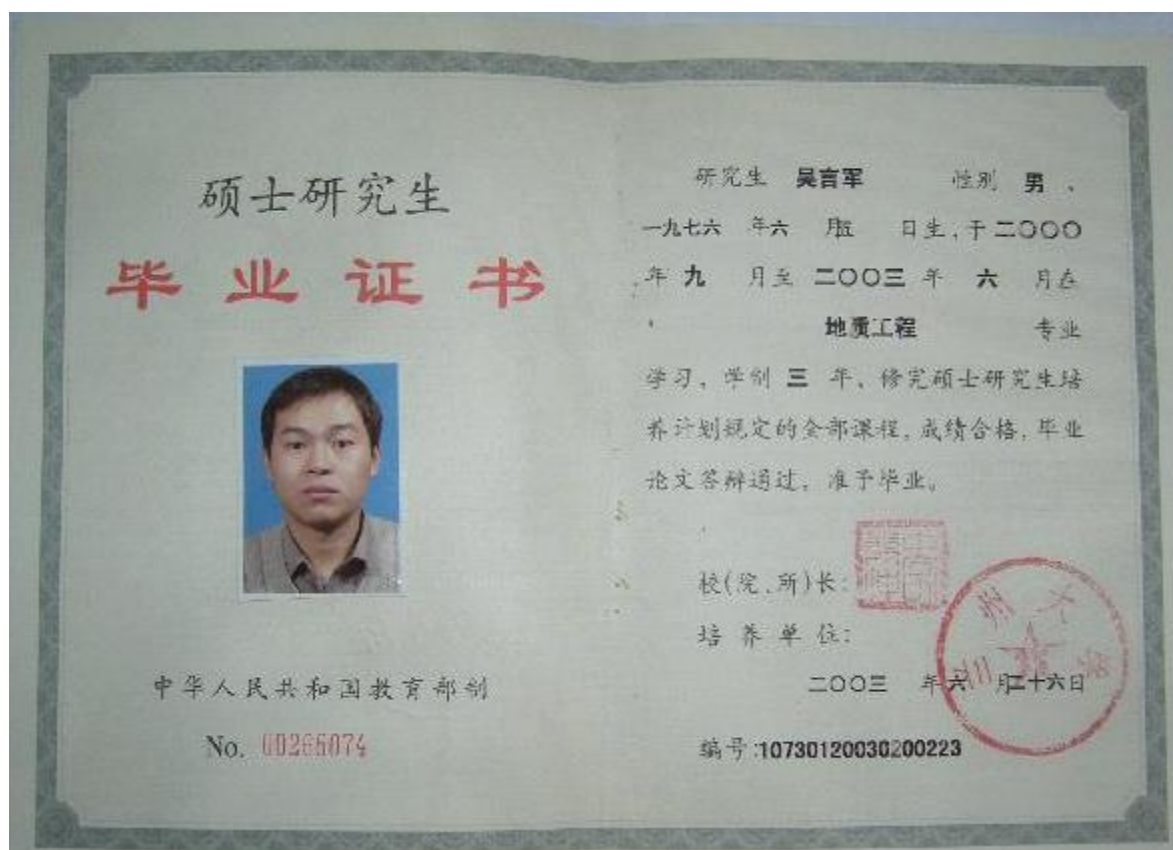 硕士研究生
毕业证书
中华人民共和国教育部制
No. 00266074
研究生 吴言军 性别 男、
一九七六 年六 月五 日生,于二〇〇〇
年 九 月至 二〇〇三 年 六 月在
地质工程 专业
学习,学制 三 年,修完硕士研究生培
养计划规定的全部课程,成绩合格,毕业
论文答辩通过,准予毕业。
校(院、所)长:
培养单位:
二〇〇三 年六 月二十六日
编号:10730120030200223
兰州大学